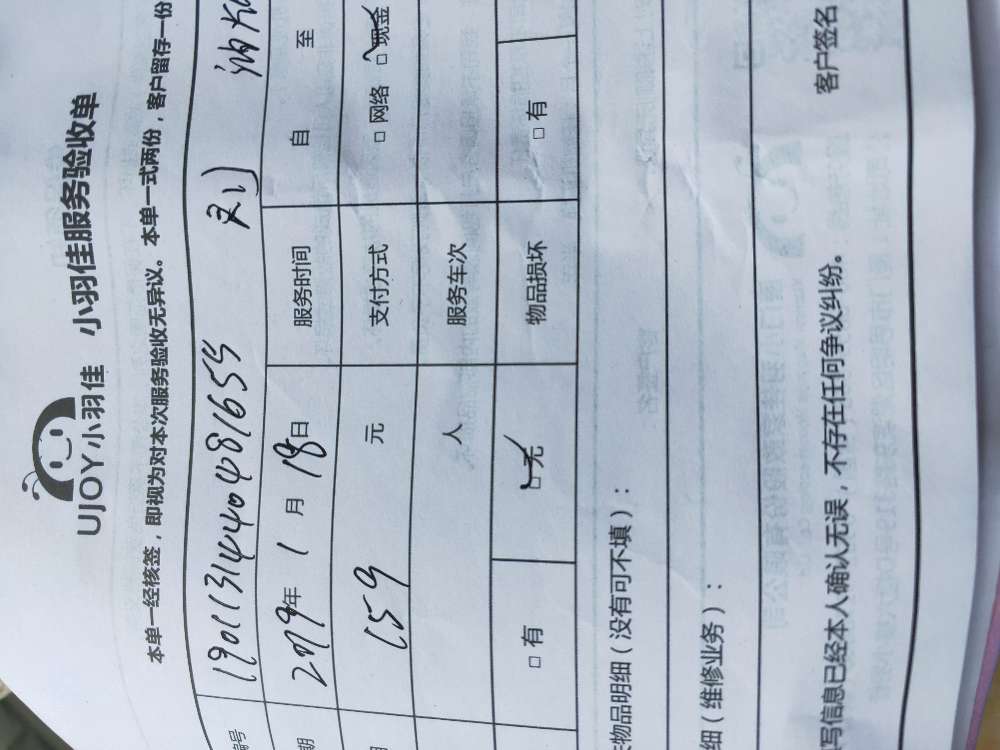 UJOY小羽佳 小羽佳服务验收单
本单一经核签，即视为对本次服务验收无异议。本单一式两份，客户留存一份
编号 1901131440481655
期 2019年 1 月 18日 服务时间 自 至
159 元 支付方式 □网络 □现金
人 服务车次
□有 □无 物品损坏 □有
物品明细（没有可不填）：
细（维修业务）：
写信息已经本人确认无误，不存在任何争议纠纷。
客户签名